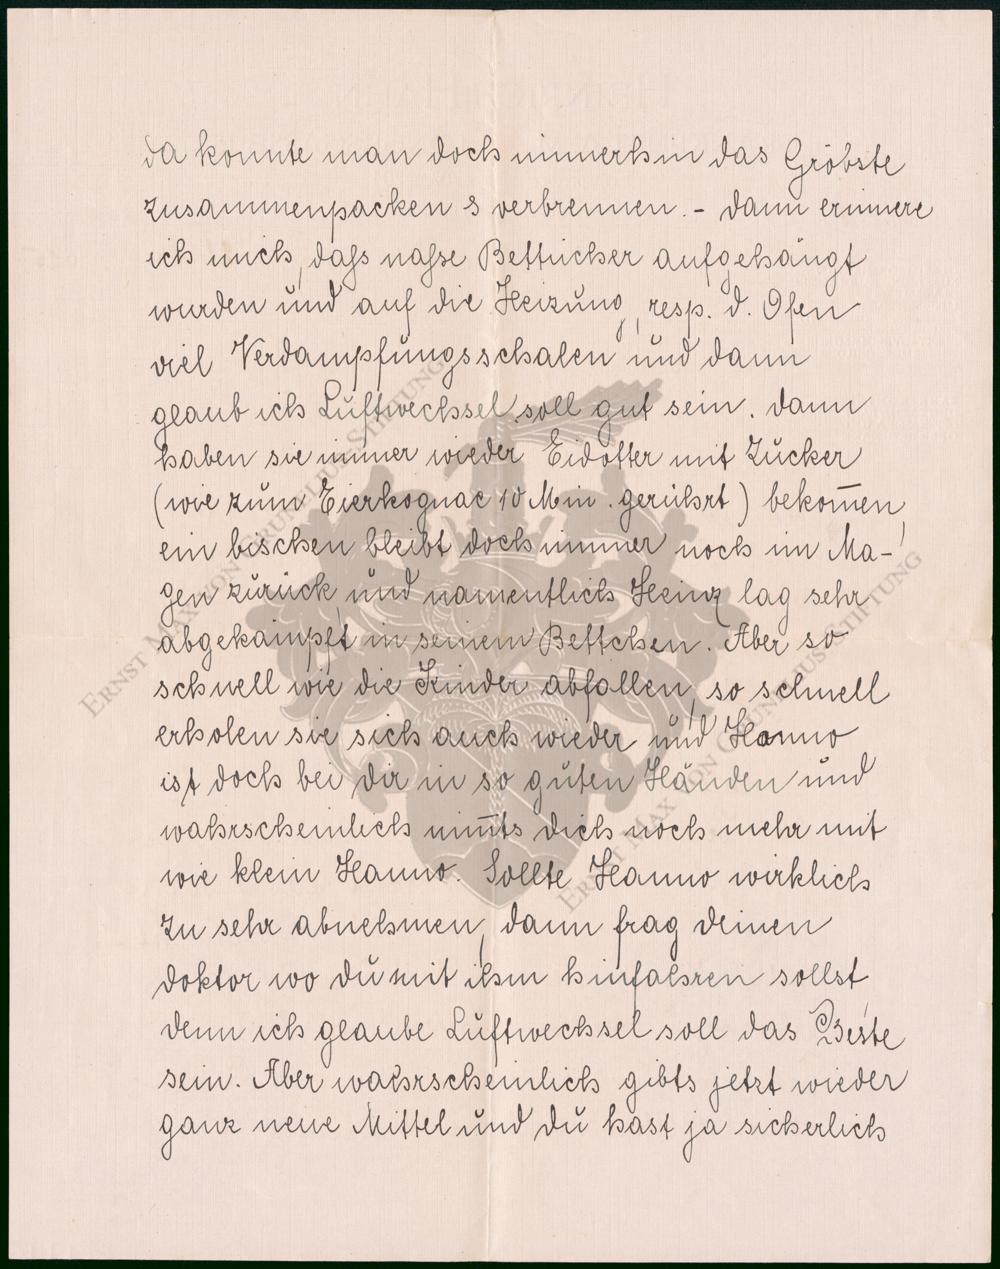 da konnte man doch immerhin das Gröbste
zusammenpacken & verbrennen. - dann erinnere
ich mich, dass nasse Bettücher aufgehängt
wurden und auf die Heizung, resp. d. Ofen
viel Verdampfungsschalen und dann
glaub ich Luftwechsel soll gut sein. dann
haben sie immer wieder Eidotter mit Zucker
(wie zum Eierkognac 10 Min. gerührt) bekom̅en,
ein bischen bleibt doch immer noch im Ma-
gen zurück, und namentlich Heinz lag sehr
abgekämpft in seinem Bettchen. Aber so
schnell wie die Kinder abfallen, so schnell
erholen sie sich auch wieder und Hanno
ist doch bei dir in so guten Händen und
wahrscheinlich nim̅ts dich noch mehr mit
wie klein Hanno. Sollte Hanno wirklich
zu sehr abnehmen, dann frag deinen
doktor wo du mit ihm hinfahren sollst
denn ich glaube Luftwechsel soll das Beste
sein. Aber wahrscheinlich gibts jetzt wieder
ganz neue Mittel und du hast ja sicherlich
ERNST MAX VON GRUNELIUS-STIFTUNG
ERNST MAX VON GRUNELIUS-STIFTUNG